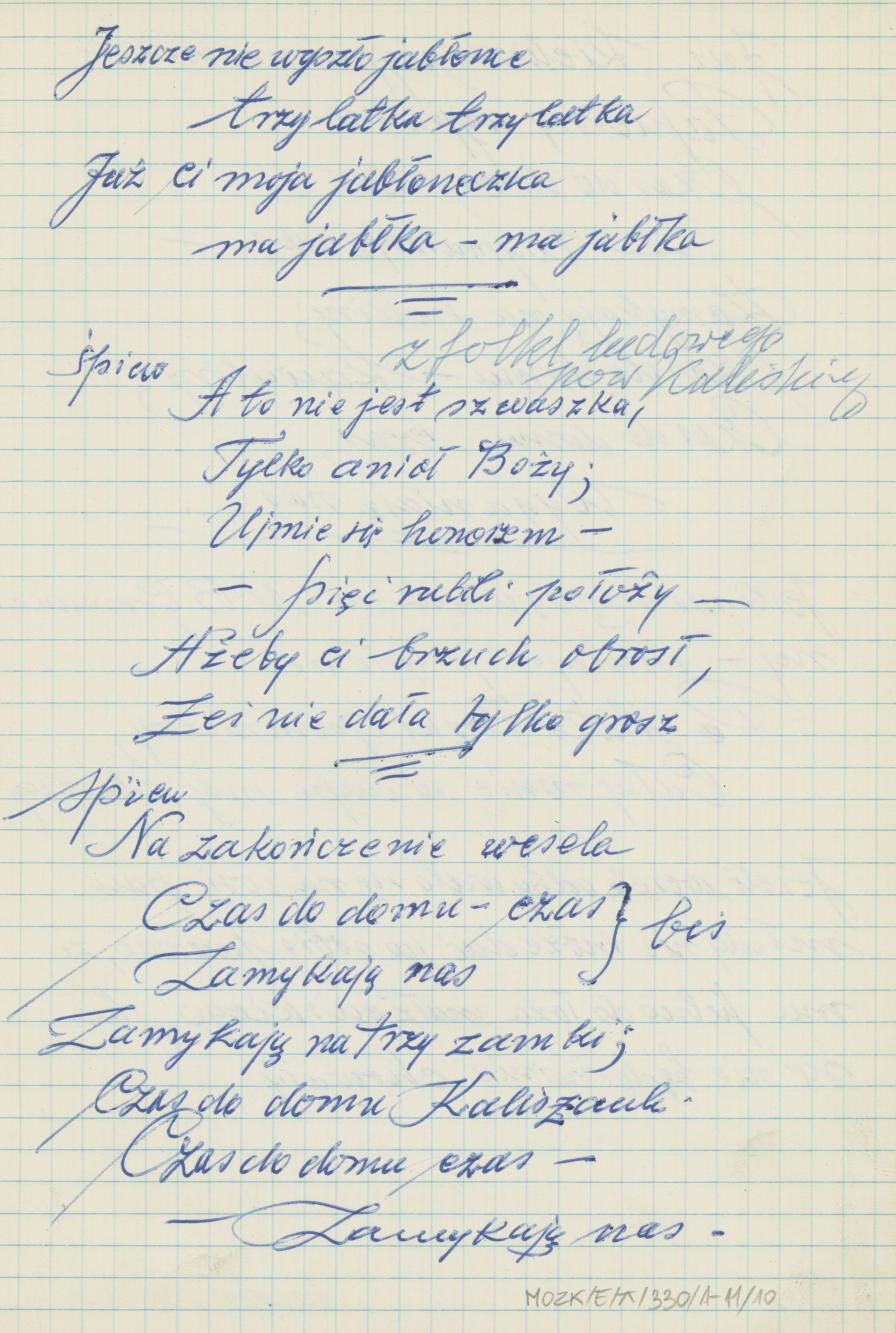 Jeszcze nie wyszło jabłonce
trzy latka trzy latka
Już ci moja jabłoneczka
ma jabłka – ma jabłka
z folkl ludowego
pow Kaliskiego
śpiew
A to nie jest szwaszka,
Tylko anioł Boży;
Ujmie się honorem –
– pięć rubli położy –
Ażeby ci brzuch obrosł,
Żeś nie dała tylko grosz
śpiew
Na zakończenie wesela
Czas do domu – czas } bis
Zamykają nas
Zamykają na trzy zamki;
Czas do domu
Czas do domu czas –
– Zamykają nas -
MOZK/E/A/330/A-11/10